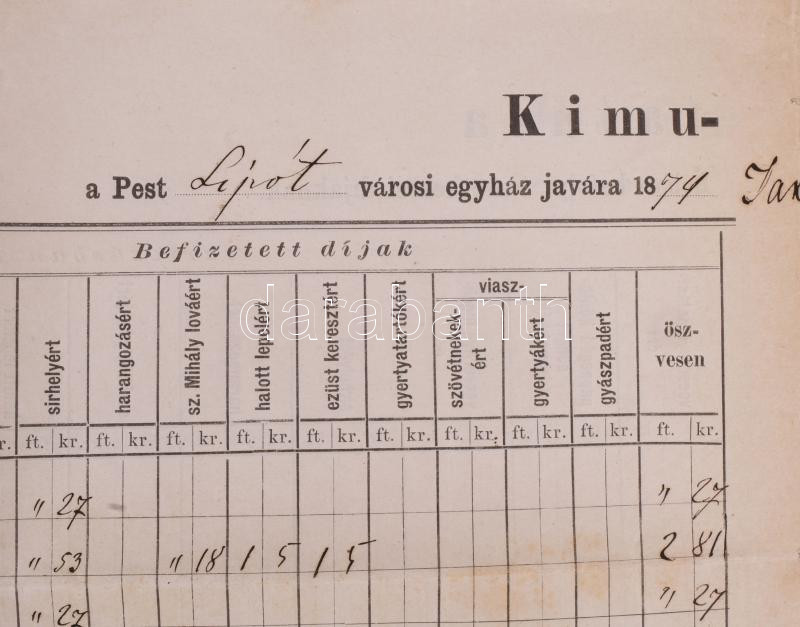 Kimu-
a Pest Lipót városi egyház javára 1874 Jan
Befizetett díjak
sirhelyért harangozásért sz. Mihály lováért halott lepelért ezüst keresztért gyertyatartókért viasz- szövétnekek-ért gyertyákért gyászpadért ösz-vesen
r. ft. kr. ft. kr. ft. kr. ft. kr. ft. kr. ft. kr. ft. kr. ft. kr. ft. kr. ft. kr.
" 27 " 27
" 53 " 18 1 5 1 5 2 81
" 27 " 27
darabanth